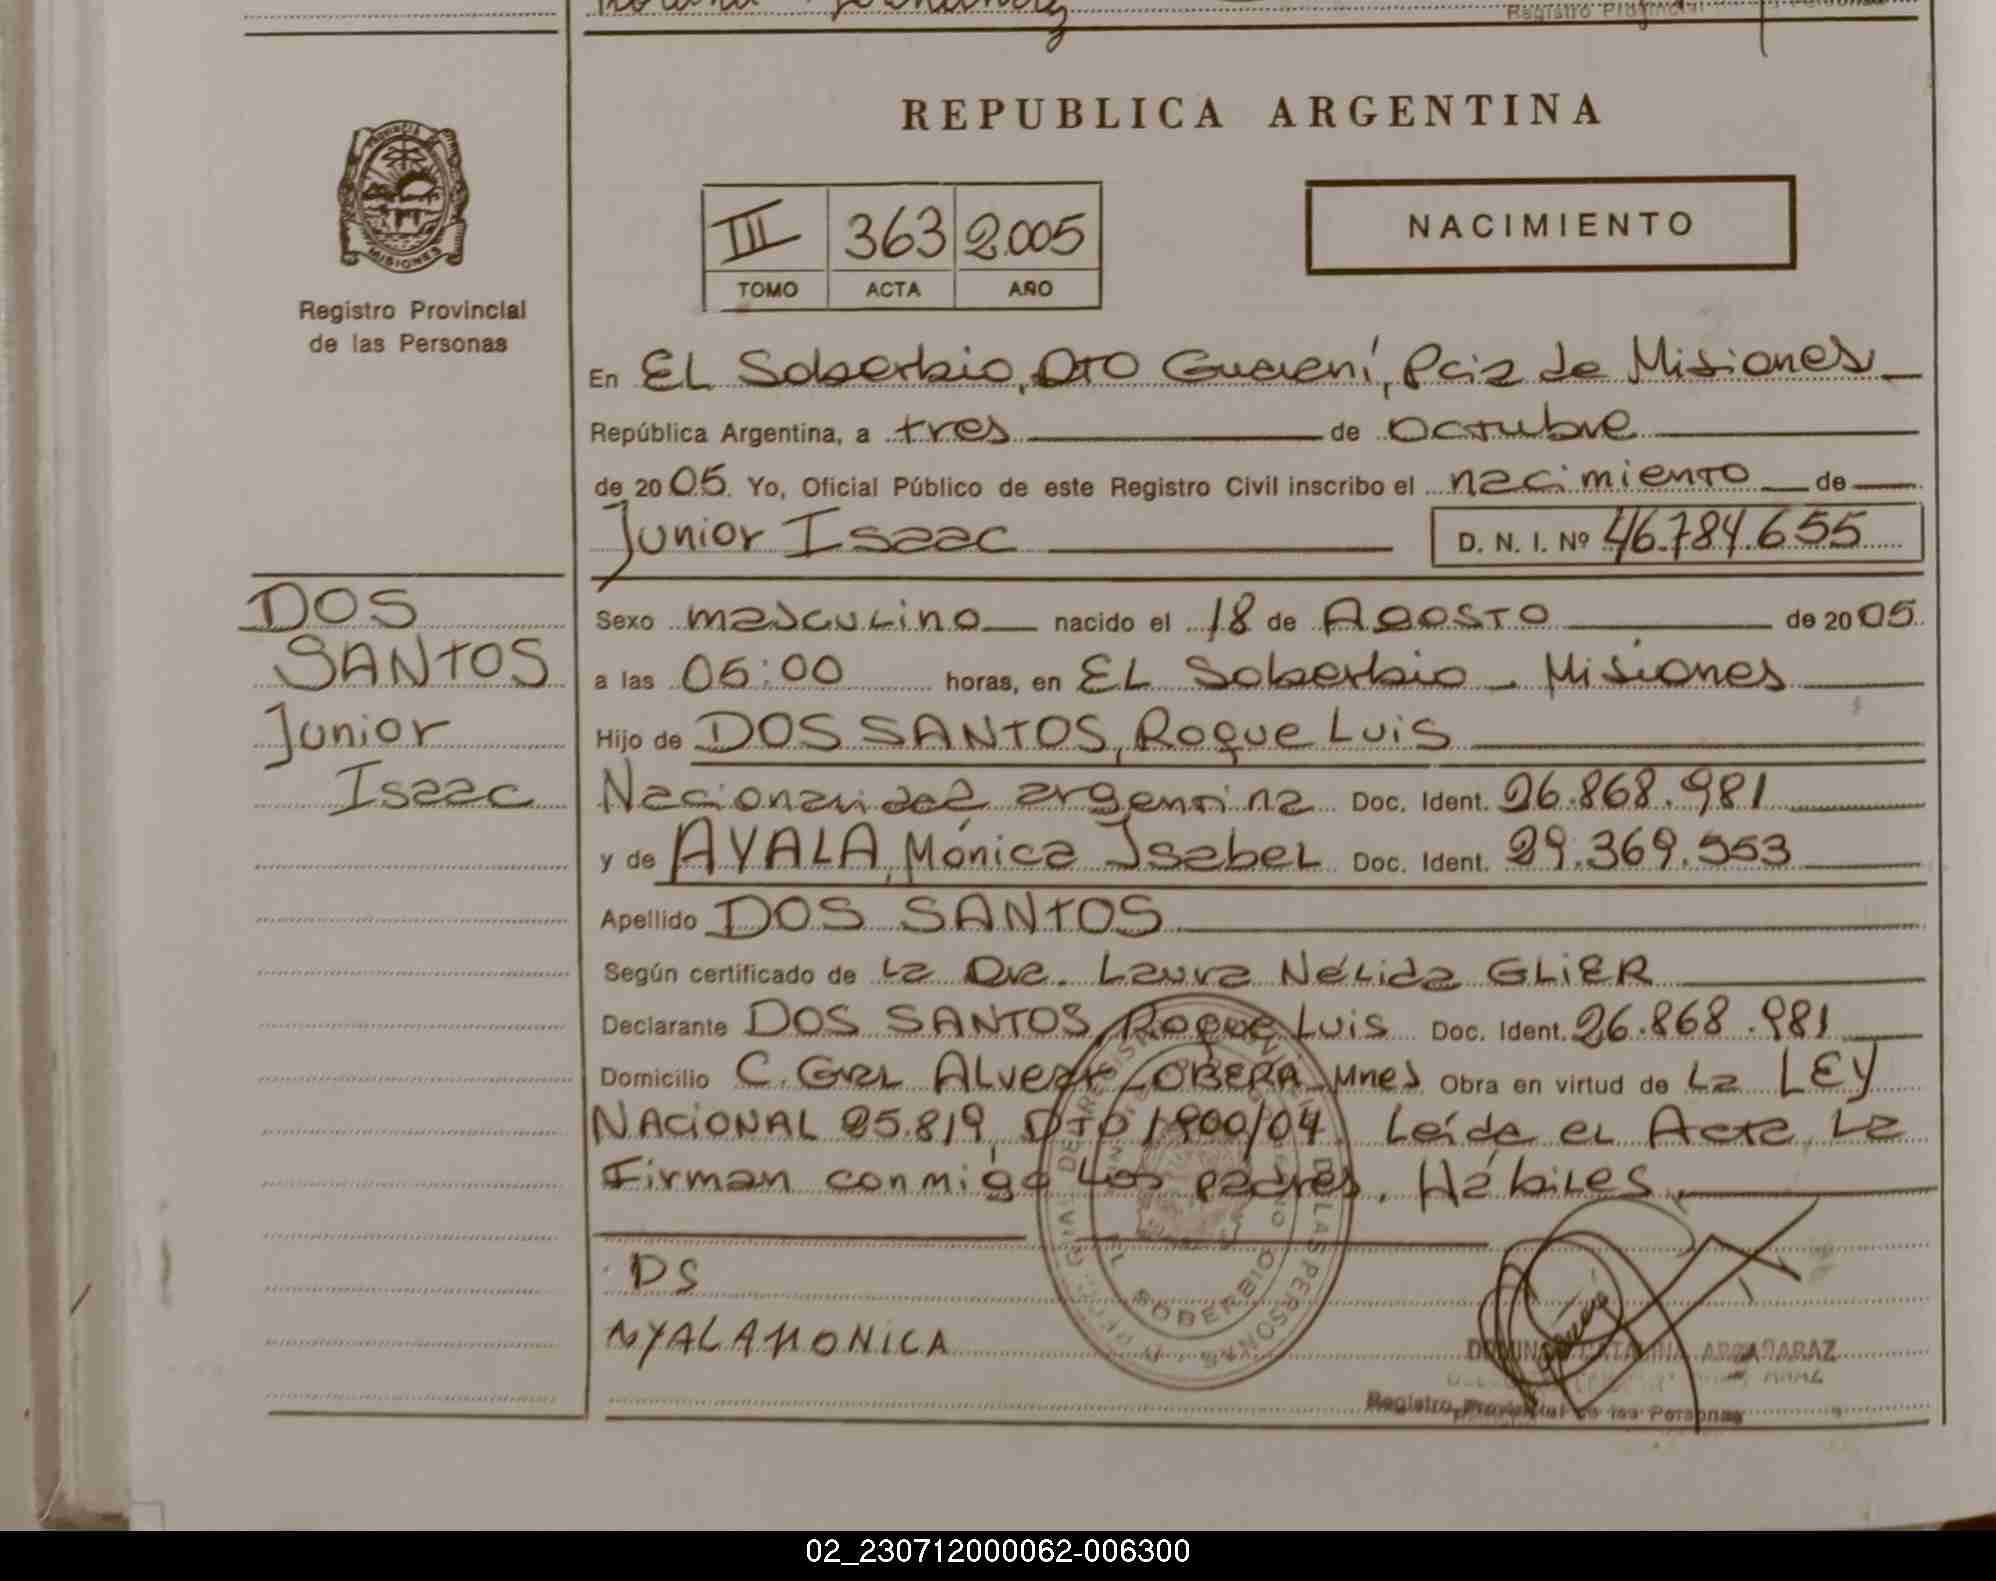 REPUBLICA ARGENTINA
PROVINCIA DE MISIONES
Registro Provincial
de las Personas
III 363 2.005
TOMO ACTA AÑO
NACIMIENTO
En EL Soberbio, DTO Guaraní, Pcia de Misiones
República Argentina, a tres de octubre
de 2005. Yo, Oficial Público de este Registro Civil inscribo el nacimiento de
Junior Isaac D. N. I. Nº 46.784.655
DOS
SANTOS
Junior
Isaac
Sexo masculino nacido el 18 de Agosto de 2005.
a las 05:00 horas, en EL Soberbio - Misiones
Hijo de DOS SANTOS, Roque Luis
Nacionalidad argentina Doc. Ident. 26.868.981
y de AYALA, Mónica Isabel Doc. Ident. 29.369.553
Apellido DOS SANTOS
Según certificado de La Dra. Laura Nélida GLIER
Declarante DOS SANTOS, Roque Luis Doc. Ident. 26.868.981
Domicilio C. Gral Alvear OBERA Mnes Obra en virtud de La LEY
NACIONAL 25.819, DTO 1900/04. Leída el Acta, La
Firman conmigo Los padres, Hábiles
DS
AYALA MONICA
EL SOBERBIO
DE LAS PERSONAS
ARGAÑARAZ
Registro Provincial de las Personas
02_230712000062-006300